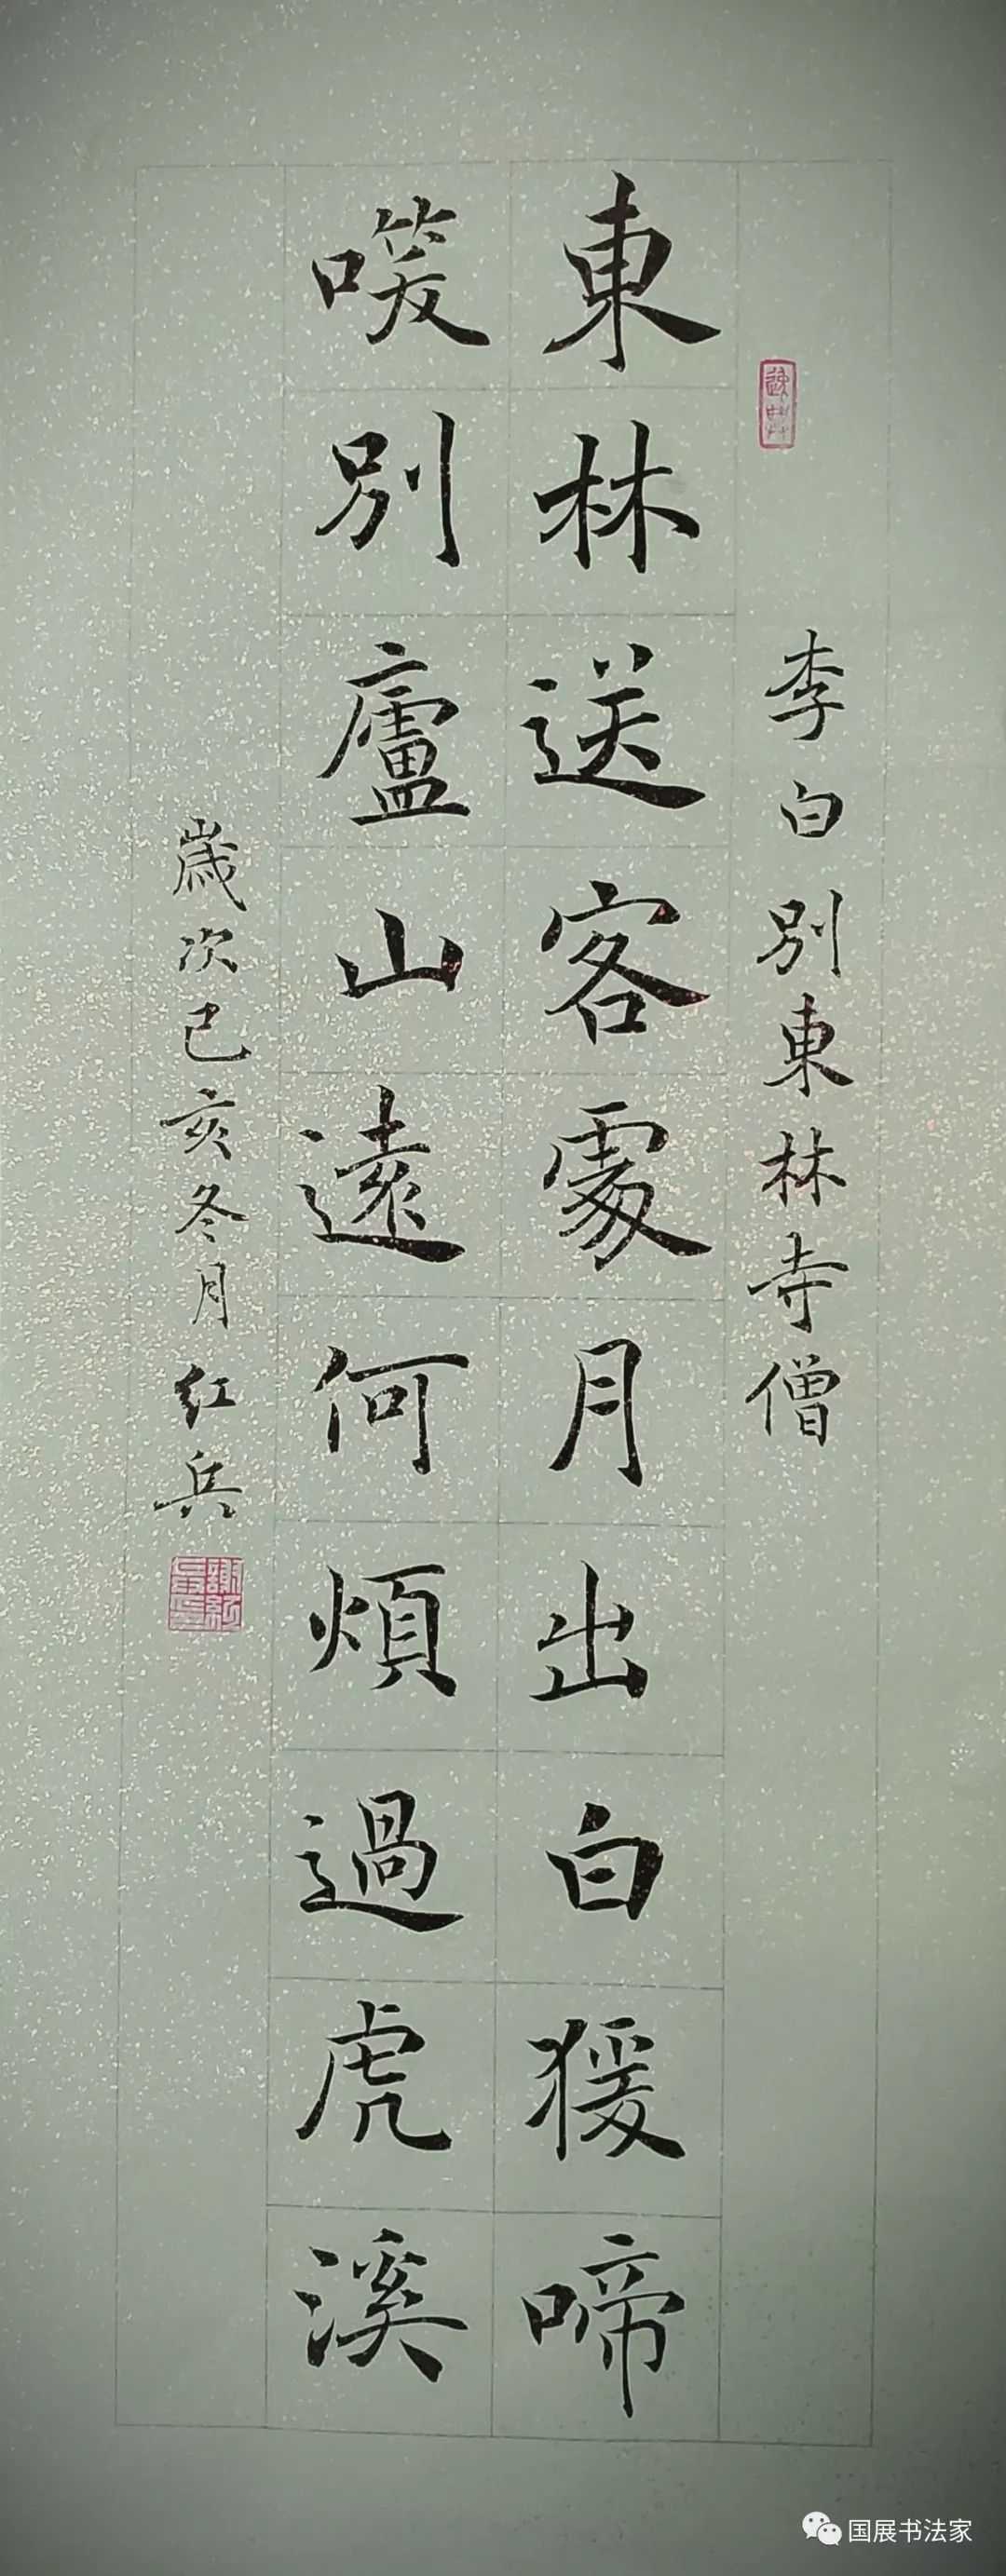 李白別東林寺僧
東林送客處月出白猨啼
咲別廬山遠何煩過虎溪
歲次己亥冬月红兵
国展书法家